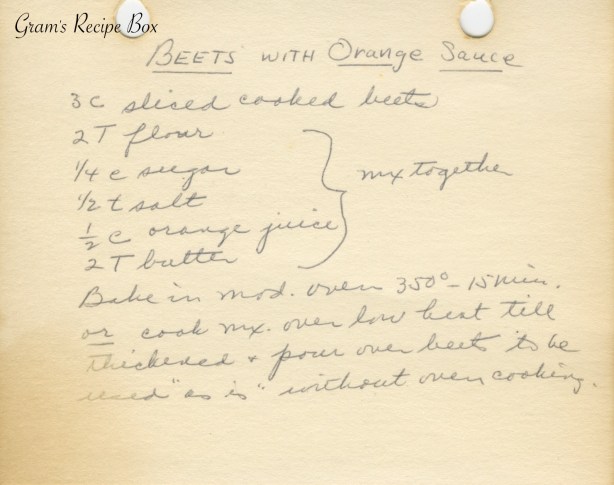 Gram's Recipe Box
Beets with Orange Sauce
3 c sliced cooked beets
2 T flour
1/4 c sugar
1/2 t salt
1/2 c orange juice
2 T butter
mx together
Bake in mod. oven 350° - 15 min.
or cook mx. over low heat till
thickened + pour over beets to be
used "as is" without oven cooking.